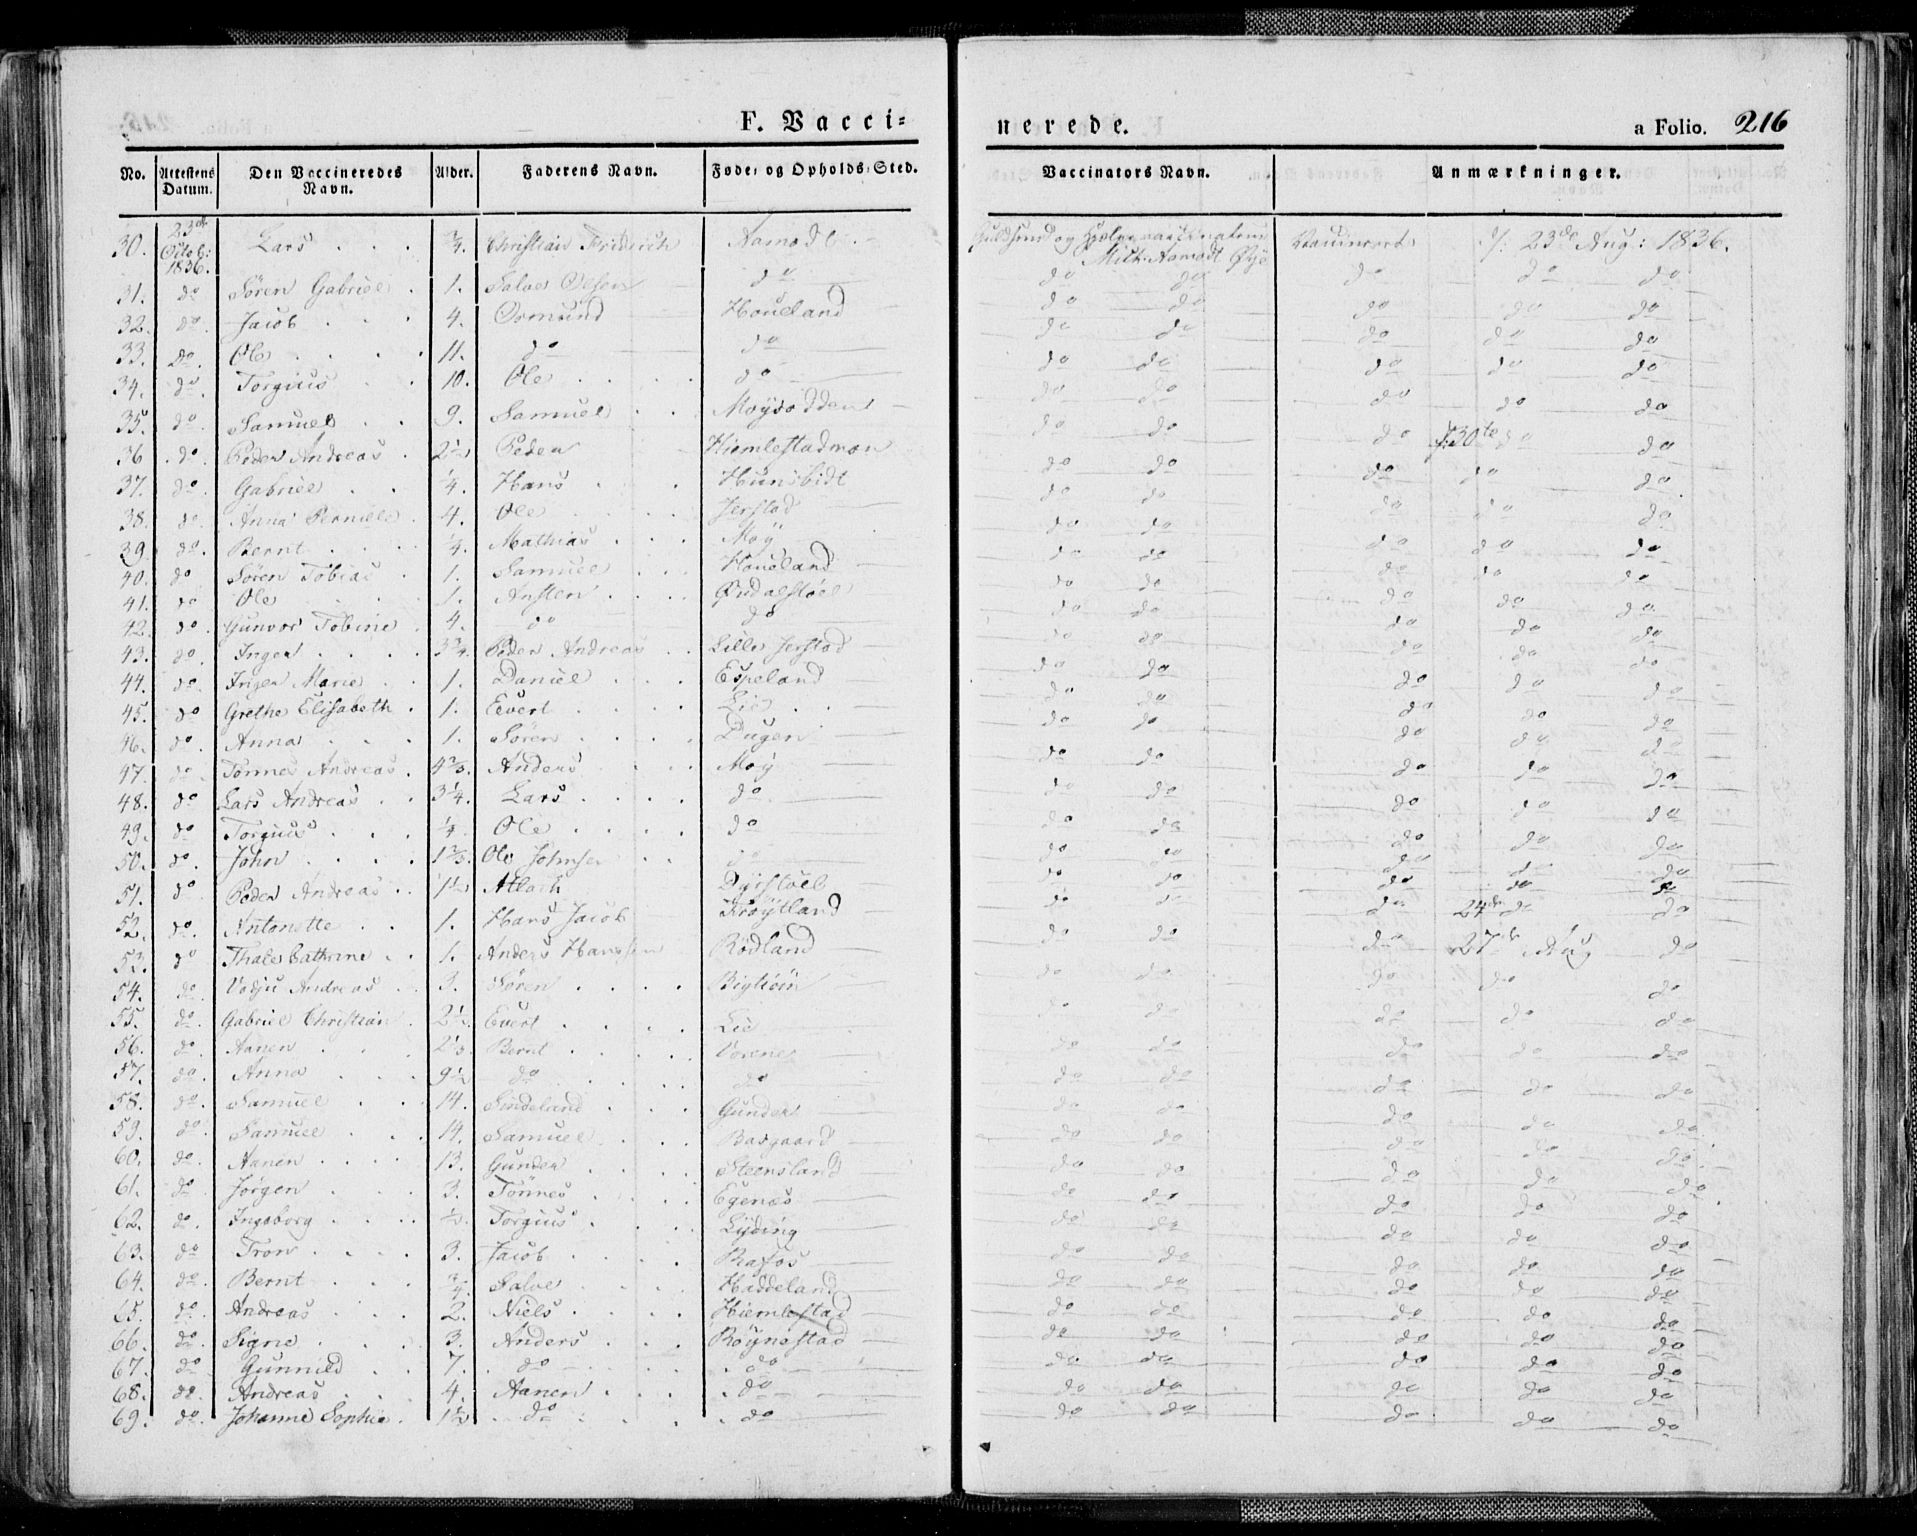 F. Vacci=
nerede.
a Folio. 216
No. Attestens Datum. Den Vaccineredes Navn. Alder. Faderens Navn. Føde- og Opholds-Sted. Vaccinators Navn. Anmærkninger.
30. 23de Octob: 1836. Lars 3/4. Christian Friderich Aamodt Guldsmed og Vaccineret d: 23de Aug: 1836.
Aamodt Øye
31. do Søren Gabriel 1. Salve Olsen do do do do do do
32. do. Jacob 4. Osmund Houeland do do do do do
33. do. Ole 11. do do do do do do do
34. do. Torgius 10. Ole do do do do do do
35. do. Samuel 9. Samuel Moysodden do do do do do
36 do. Peder Andreas 2 1/2 Peder Hiemlestadmoen do do do d:30te do do
37. do. Gabriel 1/4. Hans Hunsbidt do do do do do
38. do. Anna Perniele 4. Ole Jerstad do do do do
39. do. Bernt 1/4. Mathias Moÿ do do do do do
40. do Søren Tobias 1. Samuel Houeland do do do do do
41. do Ole 1. Ansten do do do do do
42. do. Gunvor Tobine 4. do do do do do do do
43. do. Inger 3 3/4. Peder Andreas Lille Jerstad do do do do do
44. do. Inger Marie 1. Daniel Espeland do do do do do
45. do Grethe Elisabeth 1. Eevert Lie do do do do do
46. do. Anna 1. Søren Dugen do do do do do
47. do. Tønnes Andreas 4 2/3. Anders Moÿ do do do do do
48. do Lars Andreas 3 1/4. Lars do. do do do do do
49. do Torgius 1/4. Ole do do do do do do
50. do. John 1 2/3. Ole Johnsen do do do do do do
51. do Peder Andreas 1 1/2 Atlach Dÿrstøel do do do do do
52. do. Antonette 1. Hans Jacob Frøÿtland do do do 24de do do
53. do Thale Cathrine 1. Anders Hanssen Rødland do do do 27de Aug do
54. do. Andreas 3. Søren do do do do do
55. do. Gabriel Christian 2 1/2. Evert Lie do do do do do
56. do. Aanen 2 1/3. Bernt do do do do do
57. do. Anna 9 1/2 do do do do do do do
58. do. Samuel 14. Sindeland Gunder do do do do do
59. do. Samuel 14. Samuel Basgaard do do do do do
60. do. Aanen 13. Gunder Steensland do do do do do
61. do Jørgen 3. Tønnes Egenæs do do do do do
62. do. Ingeborg 1/2. Torgius Lÿding do do do do do
63. do Tron 3. Jacob Rafos do do do do do
64. do. Bernt 3/4. Salve Haddeland do do do do do
65. do. Andreas 2. Niels Hiemlestad do do do do do
66. do. Signe 3. Anders Røÿnestad do do do do do
67. do. Gunnild 7. do do do do do do do
68. do. Andreas 4. Aanen do do do do do do
69. do. Johanne Sophie 1 1/2 do do do do do do do